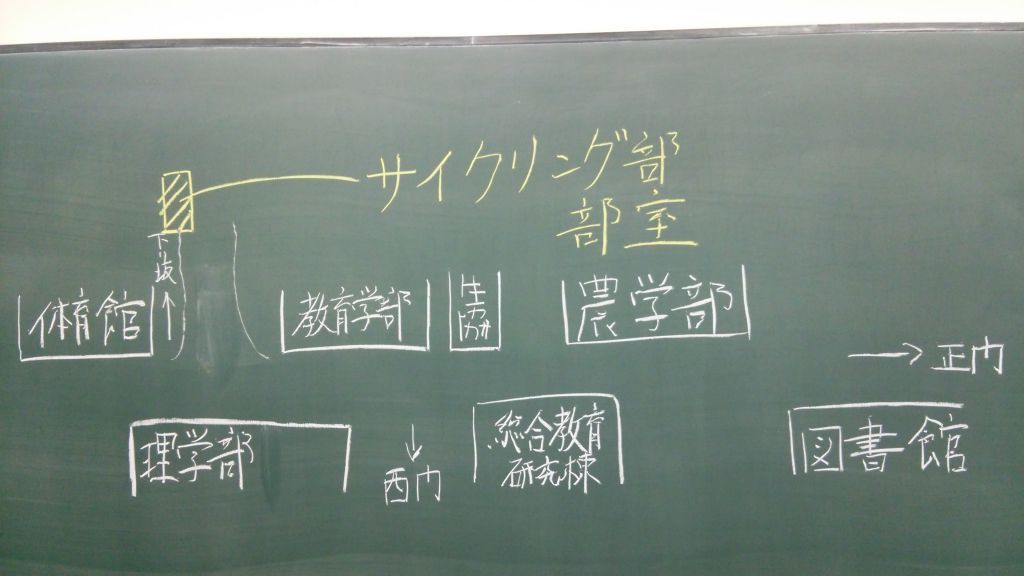 サイクリング部
部室
下坂↑
体育館
教育学部
生協
農学部
→正門
理学部
↓
西門
総合教育
研究棟
図書館